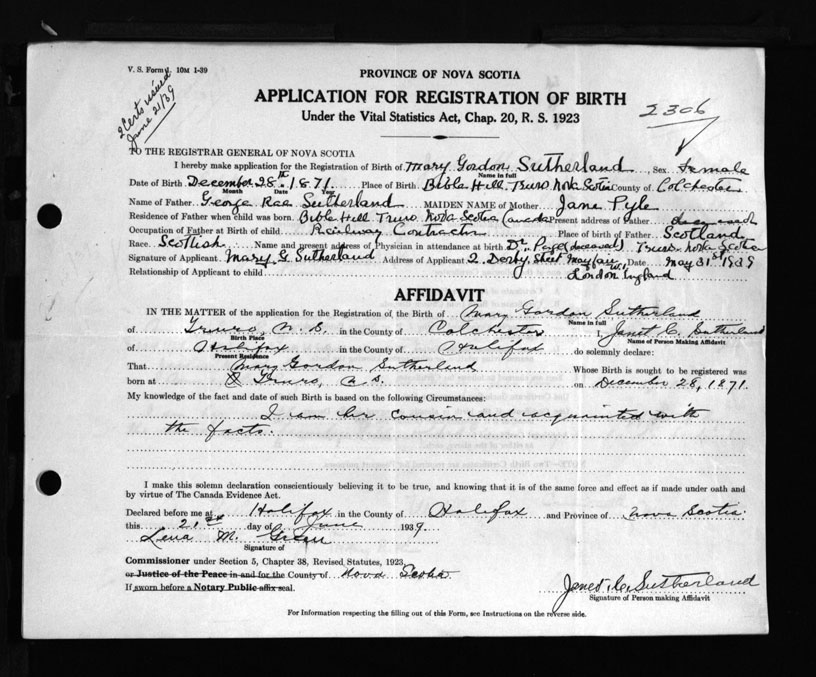 V. S. Form 1. 10M 1-39
2 Certs issued
June 21/39
PROVINCE OF NOVA SCOTIA
APPLICATION FOR REGISTRATION OF BIRTH
Under the Vital Statistics Act, Chap. 20, R. S. 1923
2306
TO THE REGISTRAR GENERAL OF NOVA SCOTIA
I hereby make application for the Registration of Birth of Mary Gordon Sutherland, Sex Female
Name in full
Date of Birth December 28th 1871. Place of Birth Bible Hill, Truro, Nova Scotia County of Colchester
Month Date Year
Name of Father George Rae Sutherland MAIDEN NAME of Mother Jane Pyle
Residence of Father when child was born. Bible Hill Truro, Nova Scotia Canada Present address of Father deceased
Occupation of Father at Birth of child Railway Contractor Place of birth of Father Scotland
Race Scottish Name and present address of Physician in attendance at birth Dr. Page (deceased) Truro Nova Scotia
Signature of Applicant Mary G. Sutherland Address of Applicant 2. Derby Street Mayfair Date May 31st 1939
Relationship of Applicant to child London W.1 England
AFFIDAVIT
IN THE MATTER of the application for the Registration, of the Birth of Mary Gordon Sutherland
Name in full
of Truro, N.S. in the County of Colchester I, Janet C. Sutherland
Birth Place Name of Person Making Affidavit
of Halifax in the County of Halifax do solemnly declare:
Present Residence
That Mary Gordon Sutherland Whose Birth is sought to be registered was
born at Truro, N.S. on December 28, 1871.
My knowledge of the fact and date of such Birth is based on the following Circumstances:
I am her cousin and acquainted with
the facts.
I make this solemn declaration conscientiously believing it to be true, and knowing that it is of the same force and effect as if made under oath and
by virtue of The Canada Evidence Act.
Declared before me at Halifax in the County of Halifax and Province of Nova Scotia
this 21st day of June 1939.
Lena M. Green
Signature of
Commissioner under Section 5, Chapter 38, Revised Statutes, 1923,
or Justice of the Peace in and for the County of Nova Scotia
If sworn before a Notary Public affix seal.
Janet C. Sutherland
Signature of Person making Affidavit
For Information respecting the filling out of this Form, see Instructions on the reverse side.